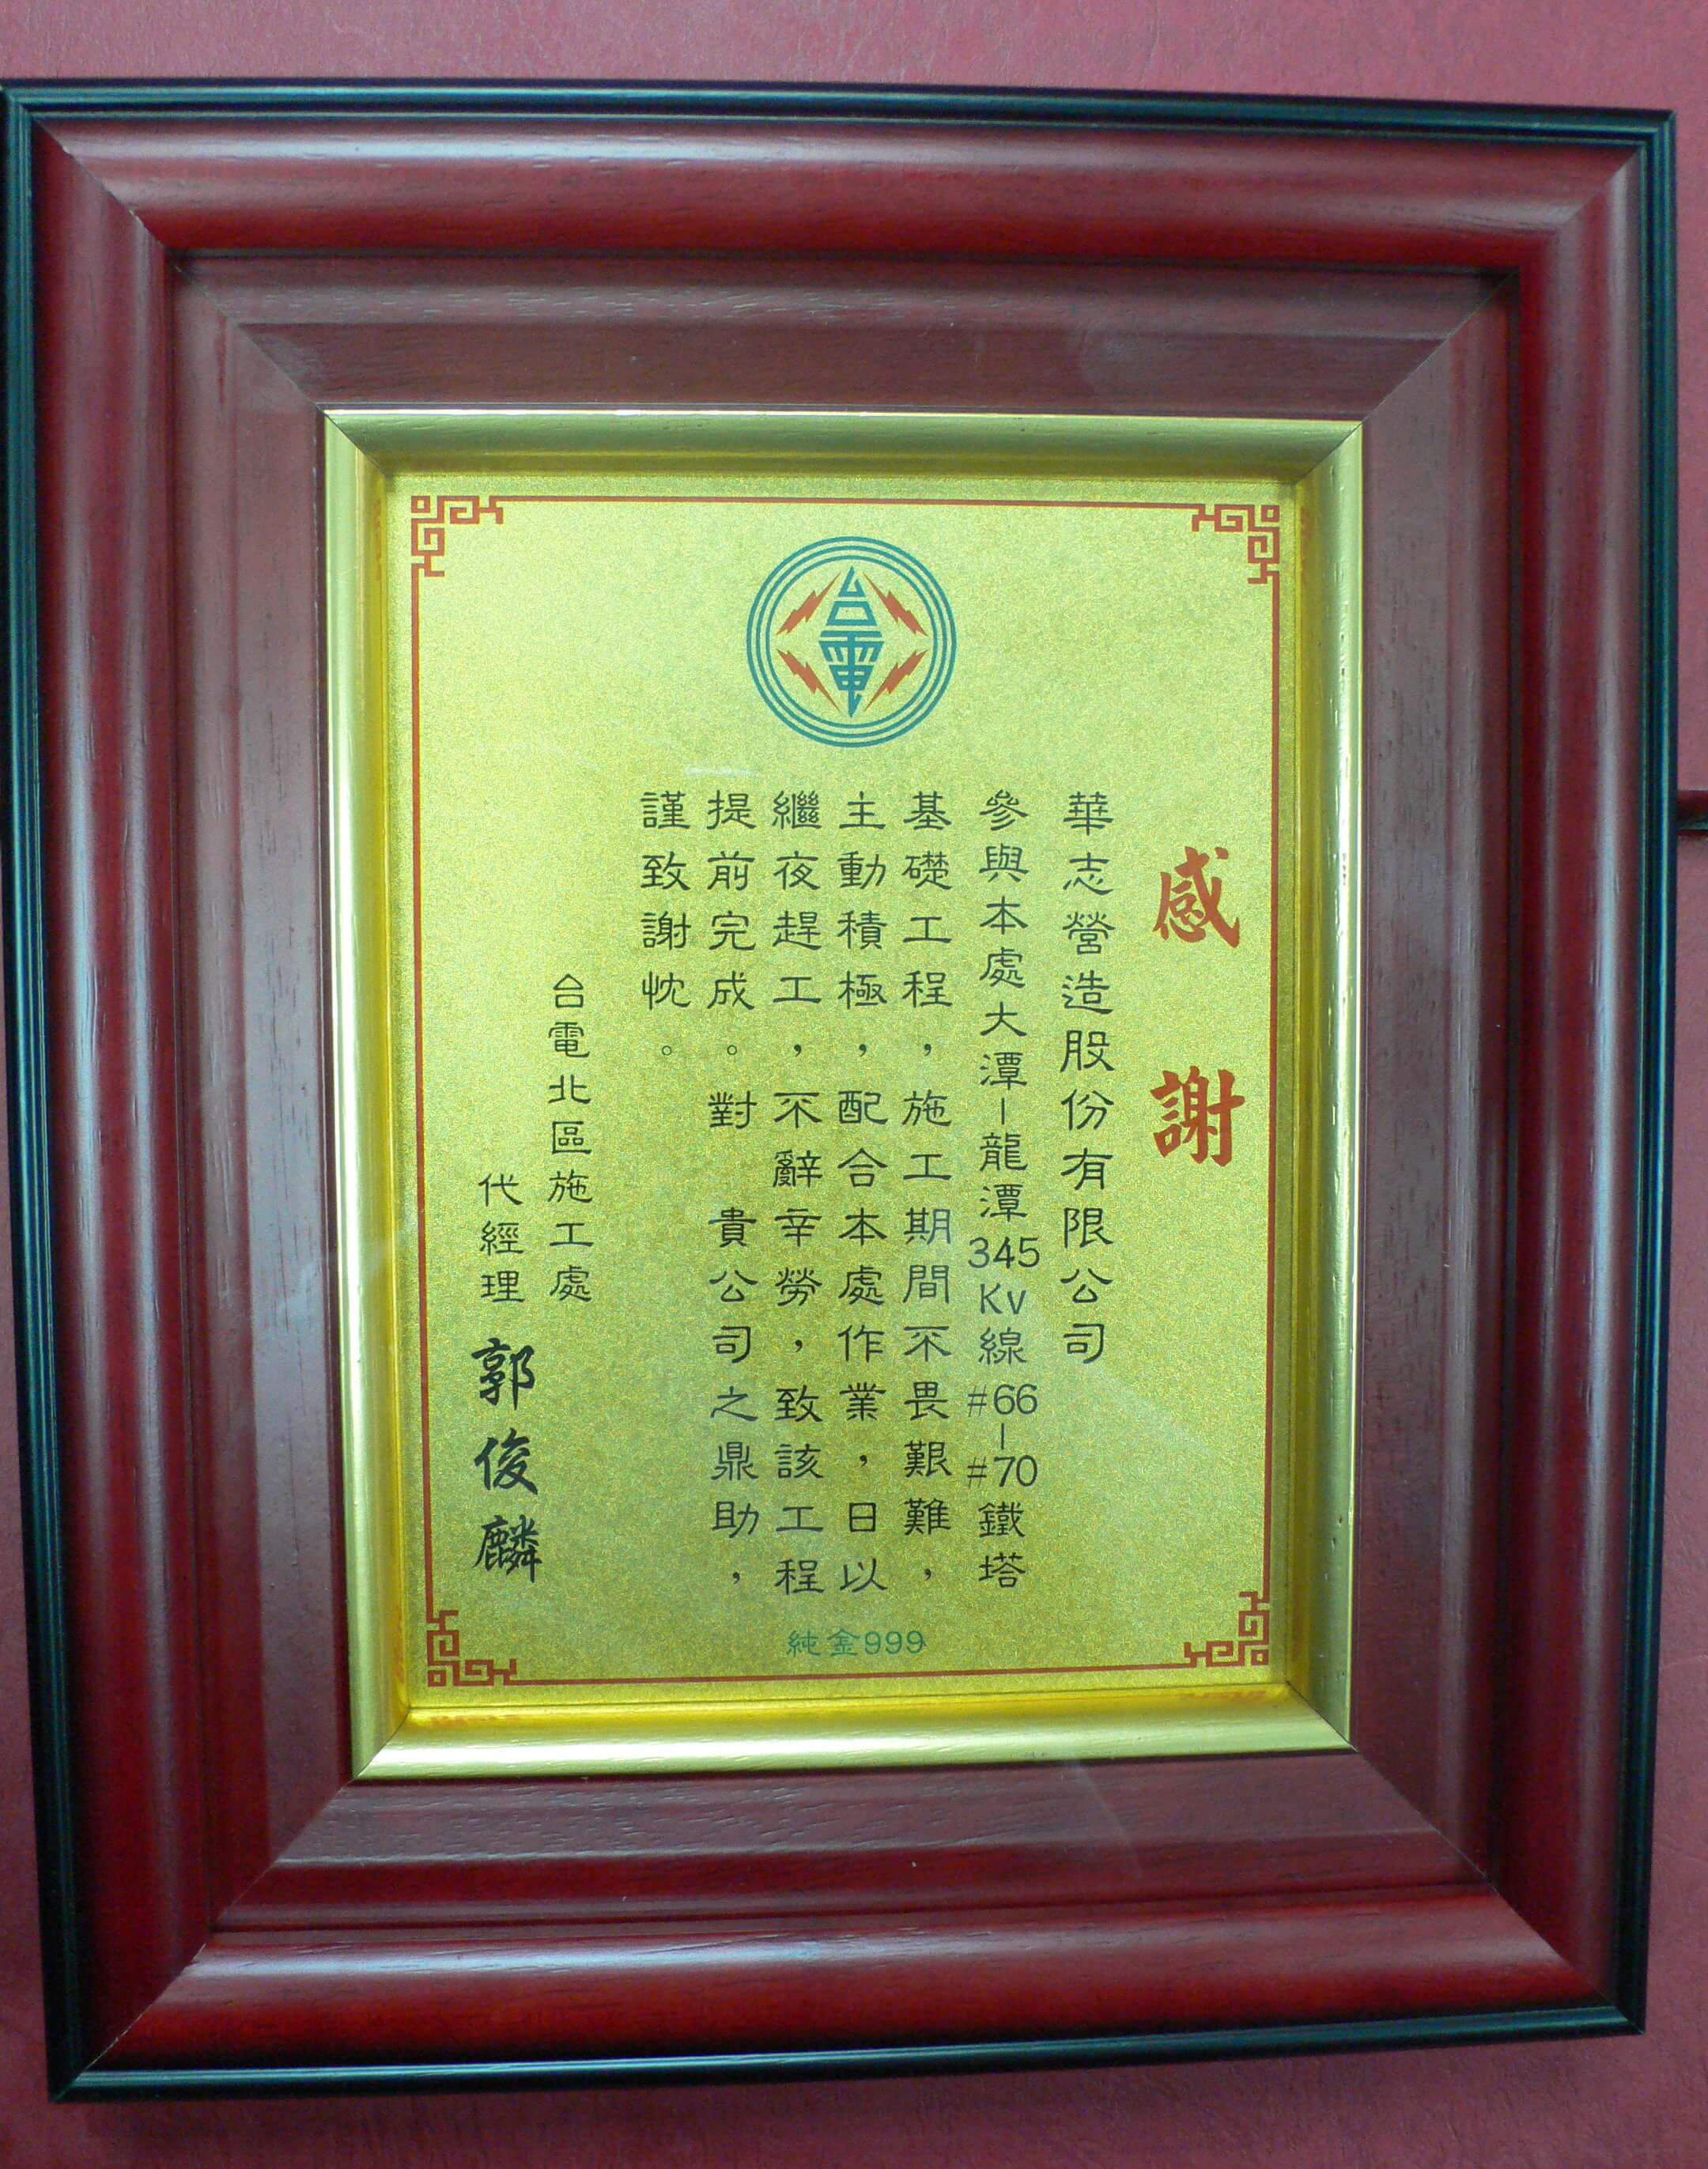 台電
感謝
華志營造股份有限公司
參與本處大潭－龍潭345Kv線#66－#70鐵塔
基礎工程，施工期間不畏艱難，
主動積極，配合本處作業，日以
繼夜趕工，不辭辛勞，致該工程
提前完成。對　貴公司之鼎助，
謹致謝忱。
台電北區施工處
代經理 郭俊麟
純金999